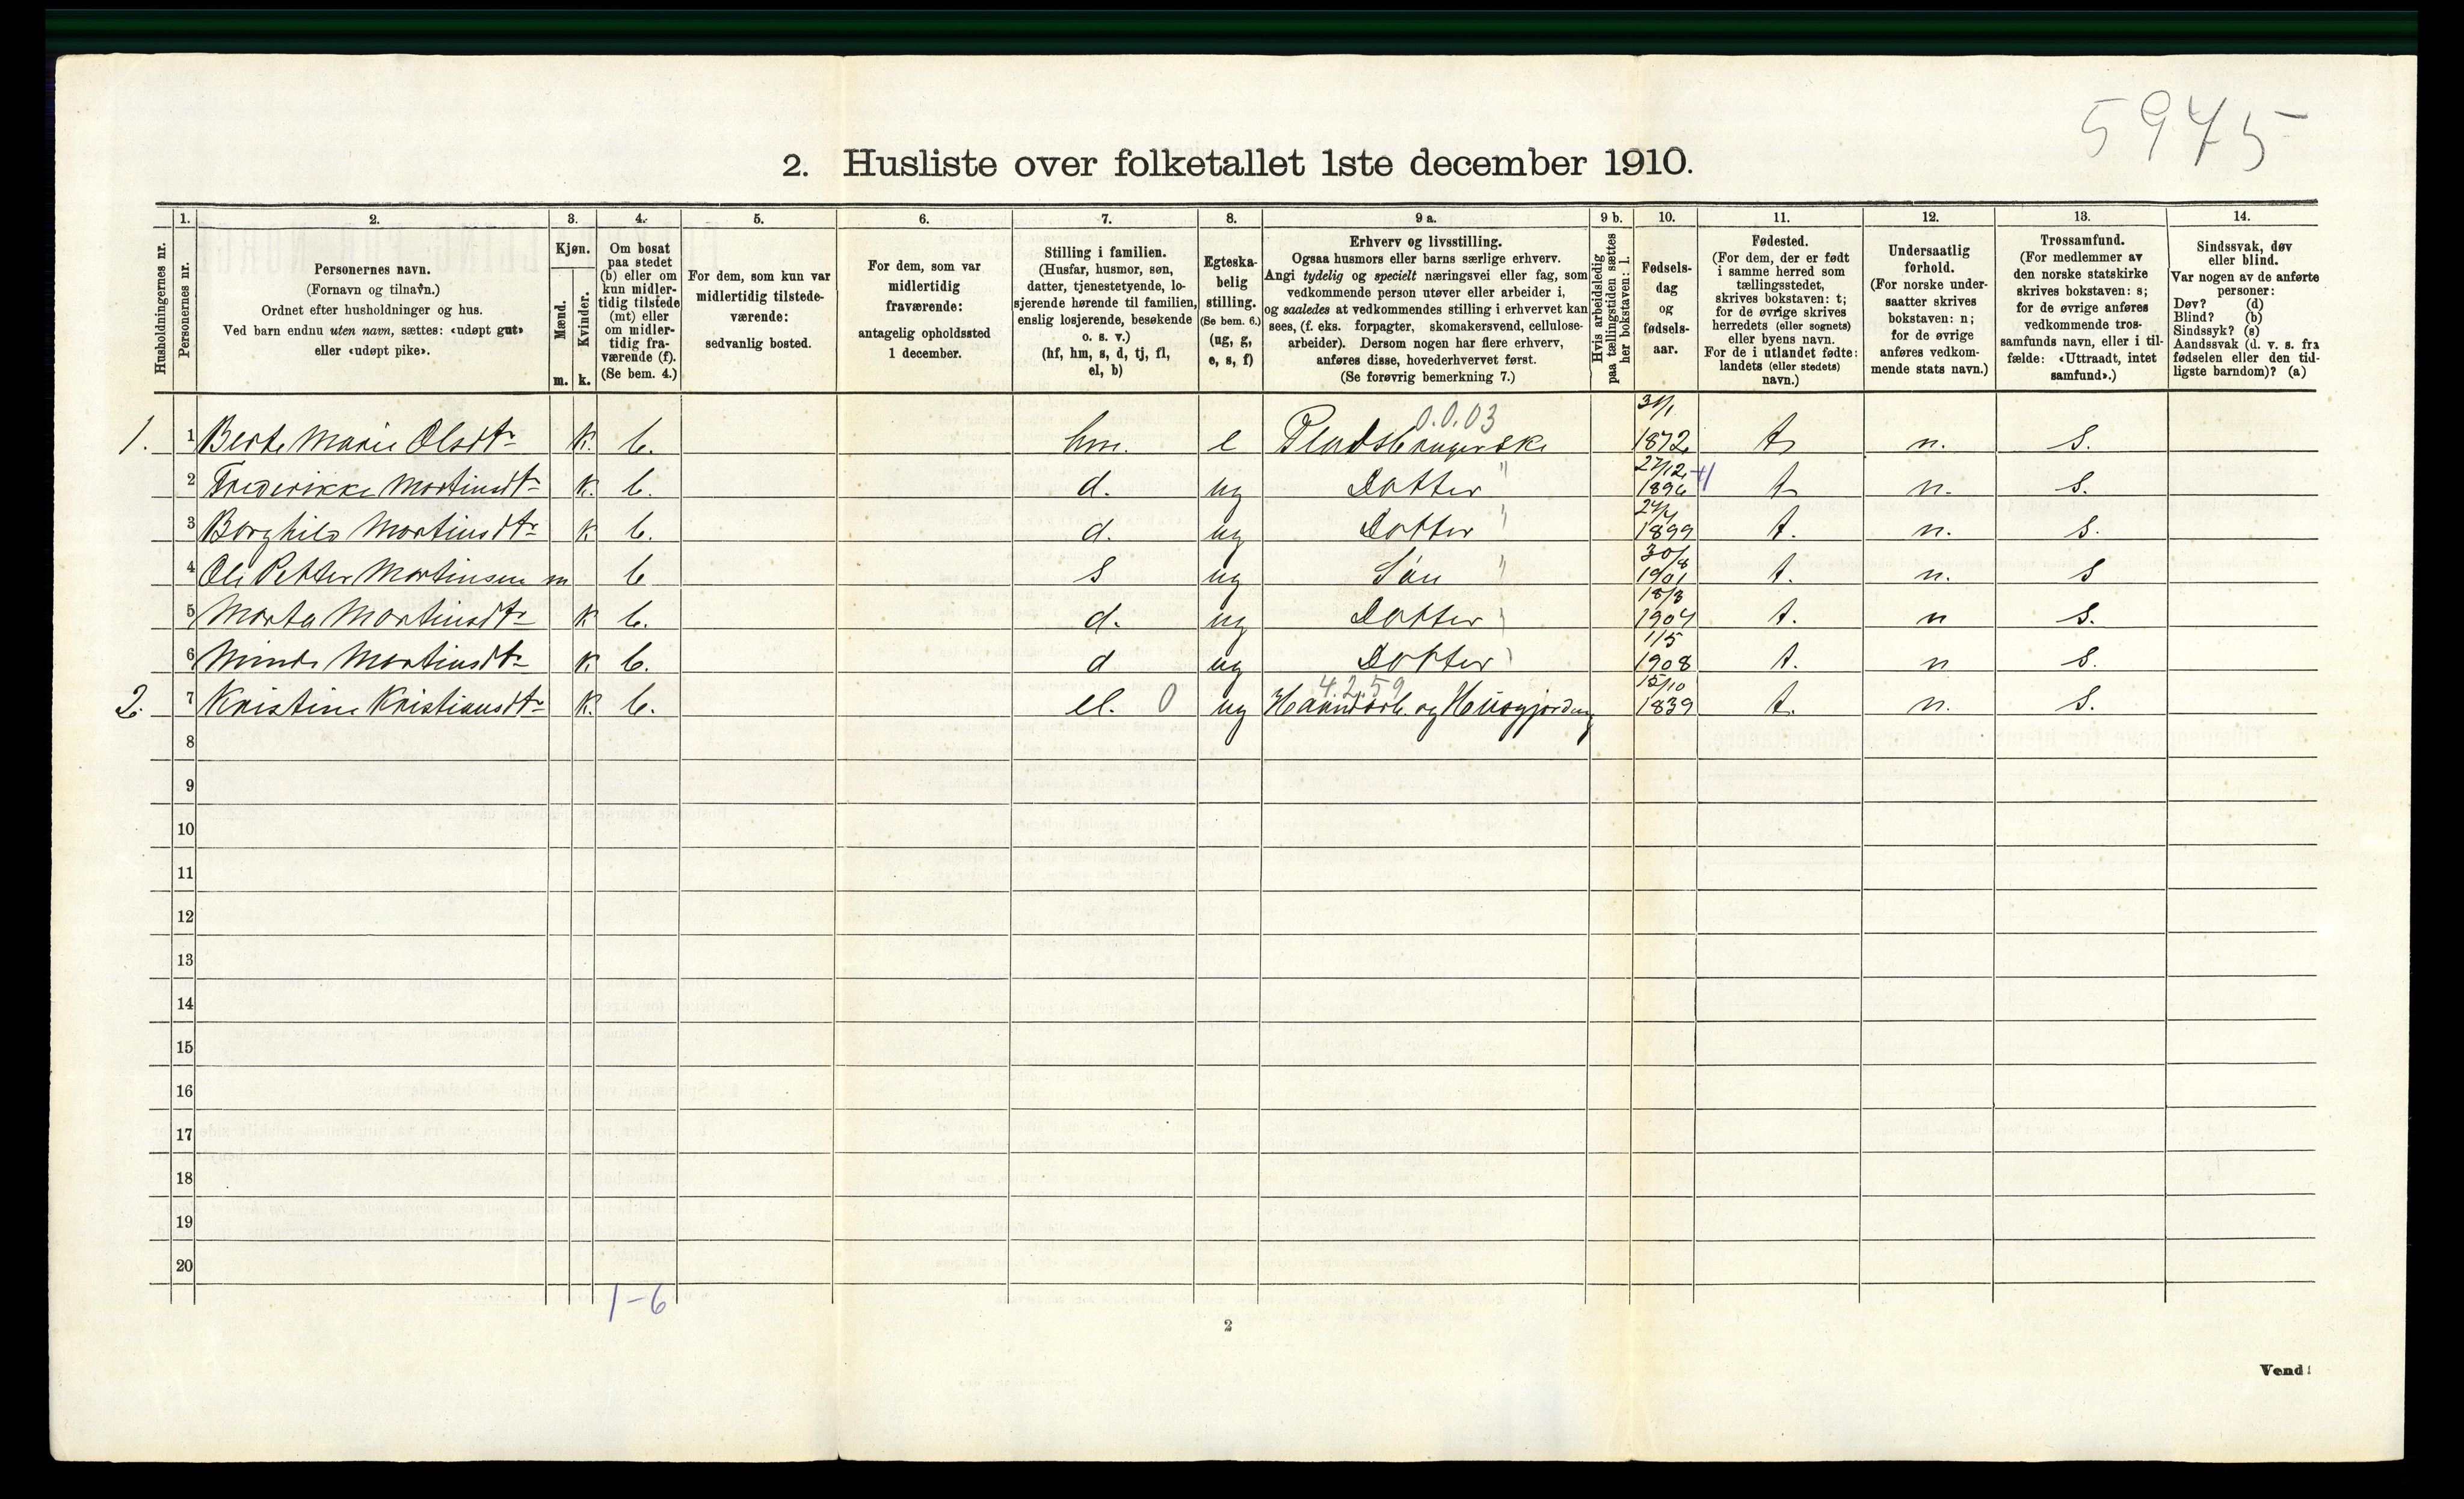 5945
2. Husliste over folketallet 1ste december 1910.
Husholdningernes nr.
1.
Personernes nr.
2.
Personernes navn.
(Fornavn og tilnavn.)
Ordnet efter husholdninger og hus.
Ved barn endnu uten navn, sættes: «udøpt gut»
eller «udøpt pike».
3.
Kjøn.
Mænd.
Kvinder.
m. k.
4.
Om bosat
paa stedet
(b) eller om
kun midler-
tidig tilstede
(mt) eller
om midler-
tidig fra-
værende (f).
(Se bem. 4.)
5.
For dem, som kun var
midlertidig tilstede-
værende:
sedvanlig bosted.
6.
For dem, som var
midlertidig
fraværende:
antagelig opholdssted
1 december.
7.
Stilling i familien.
(Husfar, husmor, søn,
datter, tjenestetyende, lo-
sjerende hørende til familien,
enslig losjerende, besøkende
o. s. v.)
(hf, hm, s, d, tj, fl,
el, b)
8.
Egteska-
belig
stilling.
(Se bem. 6.)
(ug, g,
e, s, f)
9 a.
Erhverv og livsstilling.
Ogsaa husmors eller barns særlige erhverv.
Angi tydelig og specielt næringsvei eller fag, som
vedkommende person utøver eller arbeider i,
og saaledes at vedkommendes stilling i erhvervet kan
sees, (f. eks. forpagter, skomakersvend, cellulose-
arbeider). Dersom nogen har flere erhverv,
anføres disse, hovederhvervet først.
(Se forøvrig bemerkning 7.)
9 b.
Hvis arbeidsledig
paa tællingstiden sættes
her bokstaven: l.
10.
Fødsels-
dag
og
fødsels-
aar.
11.
Fødested.
(For dem, der er født
i samme herred som
tællingsstedet,
skrives bokstaven: t;
for de øvrige skrives
herredets (eller sognets)
eller byens navn.
For de i utlandet fødte:
landets (eller stedets)
navn.)
12.
Undersaatlig
forhold.
(For norske under-
saatter skrives
bokstaven: n;
for de øvrige
anføres vedkom-
mende stats navn.)
13.
Trossamfund.
(For medlemmer av
den norske statskirke
skrives bokstaven: s;
for de øvrige anføres
vedkommende tros-
samfunds navn, eller i til-
fælde: «Uttraadt, intet
samfund».)
14.
Sindssvak, døv
eller blind.
Var nogen av de anførte
personer:
Døv? (d)
Blind? (b)
Sindssyk? (s)
Aandssvak (d. v. s. fra
fødselen eller den tid-
ligste barndom)? (a)
0.0.03
1. 1 Berte Marie Olsdtr k. b. hm. e Pladsbrugerske 31/1 1872 t n. s.
2 Frederikke Martinsdtr k. b. d. ug Datter " 27/12 1896 t n. s.
3 Borghild Martinsdtr k b. d. ug Datter " 1899 t. n. s.
4 Ole Petter Martinsen m b s ug Søn " 30/8 1901 t. n. s
5 Marta Martinsdtr k b. d. ug Datter " 18/3 1904 t. n s.
6 Martinsdtr k. b. d ug Datter " 1/5 1908 t. n s.
4.2.59
2. 7 Kristine Kristiansdtr k. b. el. 0 ug Haandarb. og Husgjerdning 15/10 1839 t. n. s.
8
9
10
11
12
13
14
15
16
17
18
19
20
1-6
2
Vend!